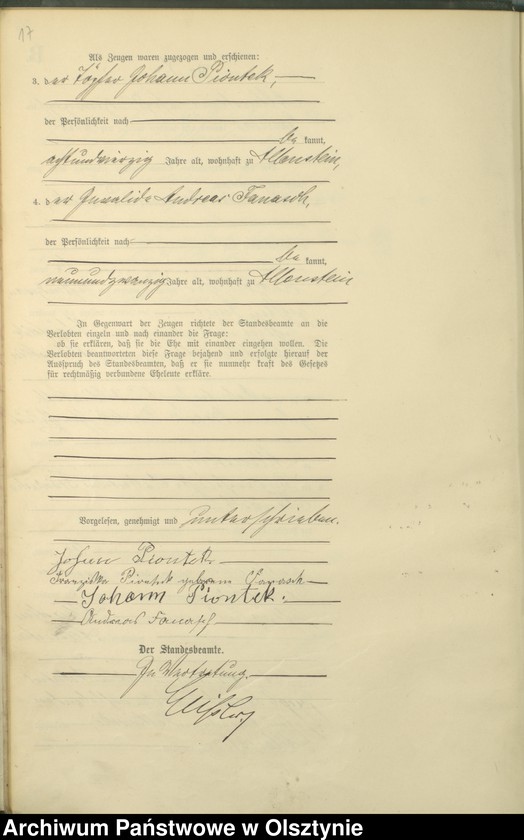 17
Als Zeugen waren zugezogen und erschienen:
3. der Töpfer Johann Piontek,
der Persönlichkeit nach
be kannt,
achtundvierzig Jahre alt, wohnhaft zu Allenstein,
4. der Invalide Andreas Fanasch,
der Persönlichkeit nach
be kannt,
neunundzwanzig Jahre alt, wohnhaft zu Allenstein
In Gegenwart der Zeugen richtete der Standesbeamte an die
Verlobten einzeln und nach einander die Frage:
ob sie erklären, daß sie die Ehe mit einander eingehen wollen. Die
Verlobten beantworteten diese Frage bejahend und erfolgte hierauf der
Ausspruch des Standesbeamten, daß er sie nunmehr kraft des Gesetzes
für rechtmäßig verbundene Eheleute erkläre.
Vorgelesen, genehmigt und unterschrieben.
Johann Piontek
Franziska Piontek geborene
Johann Piontek.
Andreas Fanasch
Der Standesbeamte.
In Vertretung.
Archiwum Państwowe w Olsztynie